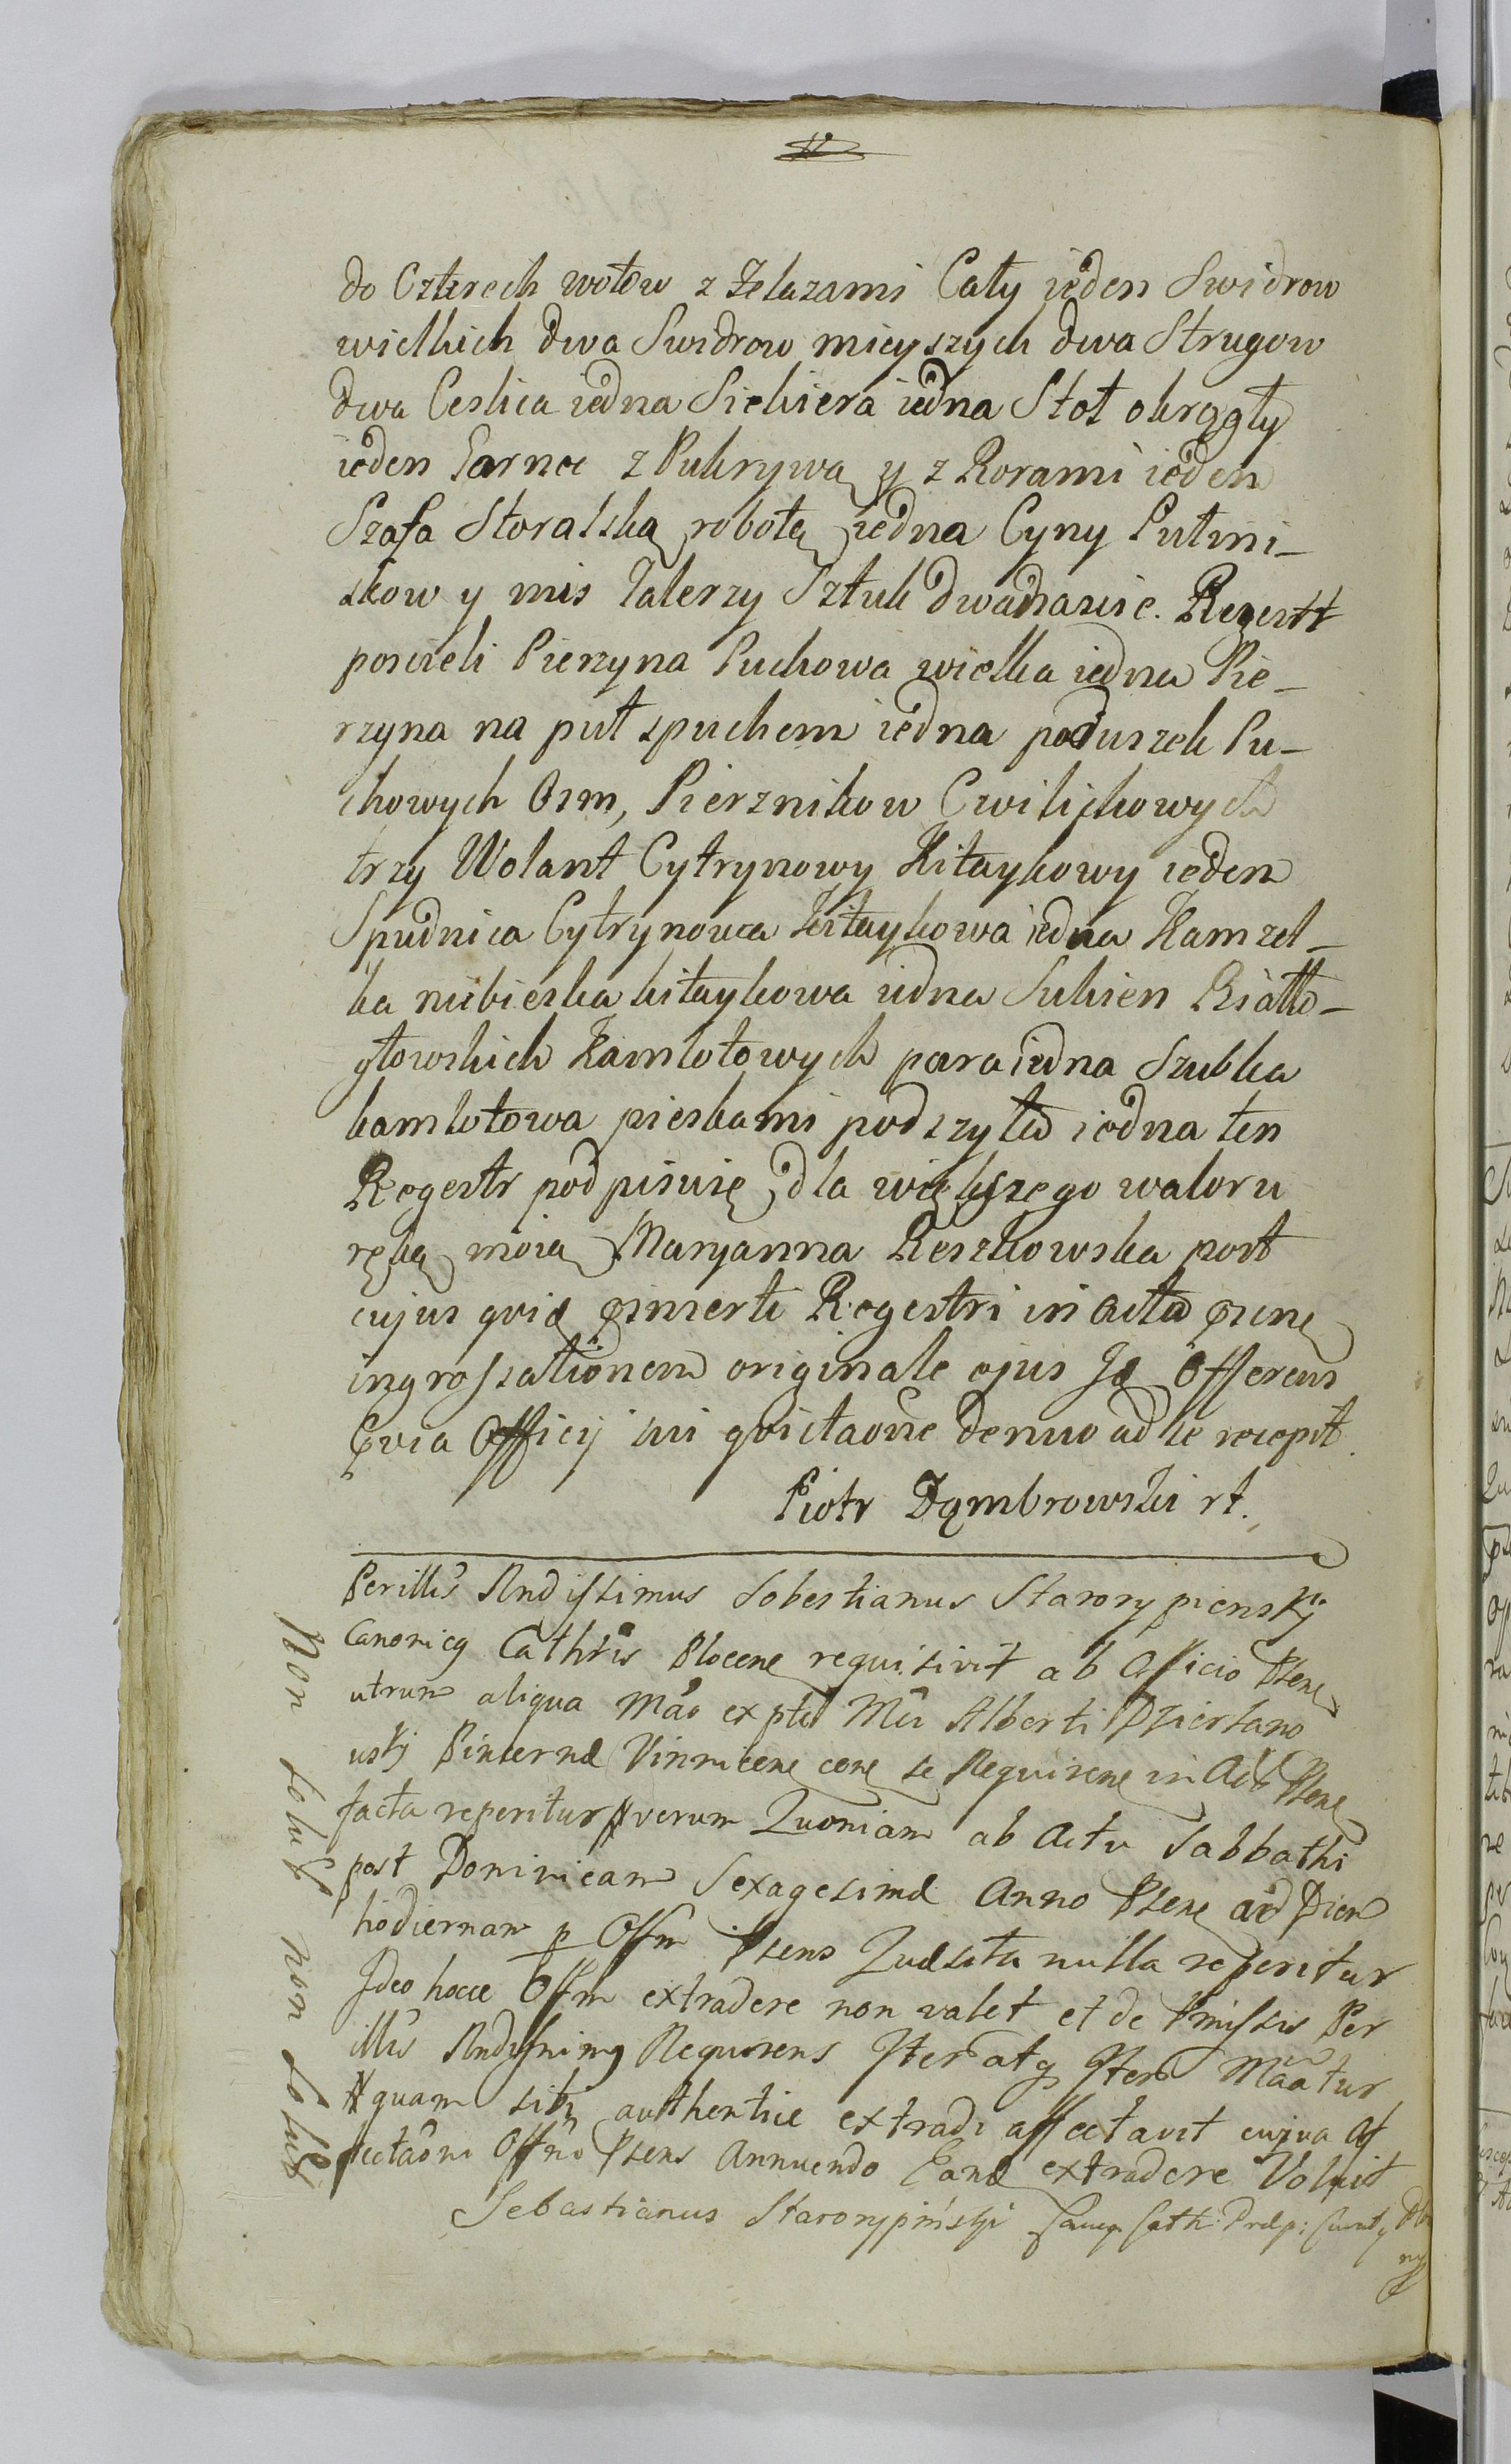 do Czterech wołow z żelazami Cały ieden Swidrow
wielkich dwa Swidrow mieyszych dwa Strugow
dwa Ceslica iedna Siekiera iedna Stoł okrągły
ieden Garnce z Pukrywą y z Rorami ieden
Szafa Storalską robotą iedna Cyny Pułmi–
skow y mis Talerzy Sztuk dwadziescie. Regestr
poscieli Pierzyna Puchowa wielka iedna Pie–
rzyna na puł spuchem iedna poduszek Pu–
chowych Osm, Pierznikow Cwilichowych
trzy Wolant Cytrynowy Kitaykowy ieden
Spudnica Cytrynowa Kitaykowa iedna Kamzel–
ka niebieska kitaykowa iedna Sukien Biało–
głowskich Kamlotowych para iedna Szubka
kamlotowa pieskami podszyta iedna ten
Regestr podpisuię dla większego waloru
ręką moią Maryanna Reszkowska post
cujus quid pinserti Regestri in Acta psene
ingrossationem originale ejus Id Offerens
Officij sui quictaone denuo ad se recepit.
Piotr Dąmbrowski rt.
Perillis Rndissimus Sobestianus Starorypiensky
Canonicg Cathris Plocene requisivit ab Officio Psene
utrum aliqua Mao ex pte Mci Alberti Dzierzano
usky Pincernæ Vinnicene cone se Requirene in Act Psene
facta reperitur verum Quoniam ab Actu Sabbathi
post Dominicam Sexagesimæ Anno Psene ad Diem
hodiernam p Offm Psens Quæsita nulla reperitur
Ideo hocce Offm extradere non valet et de Pmissis Per
illis Rndissimg Requirens Iter atq Iter Maatur
quam sibi authentice extradi affectavit cujus Af
fectaoni Offm Psens Annuendo Eand extradere Voluit
Sebastianus Starorypiński Cath:
Non soluit non soluit